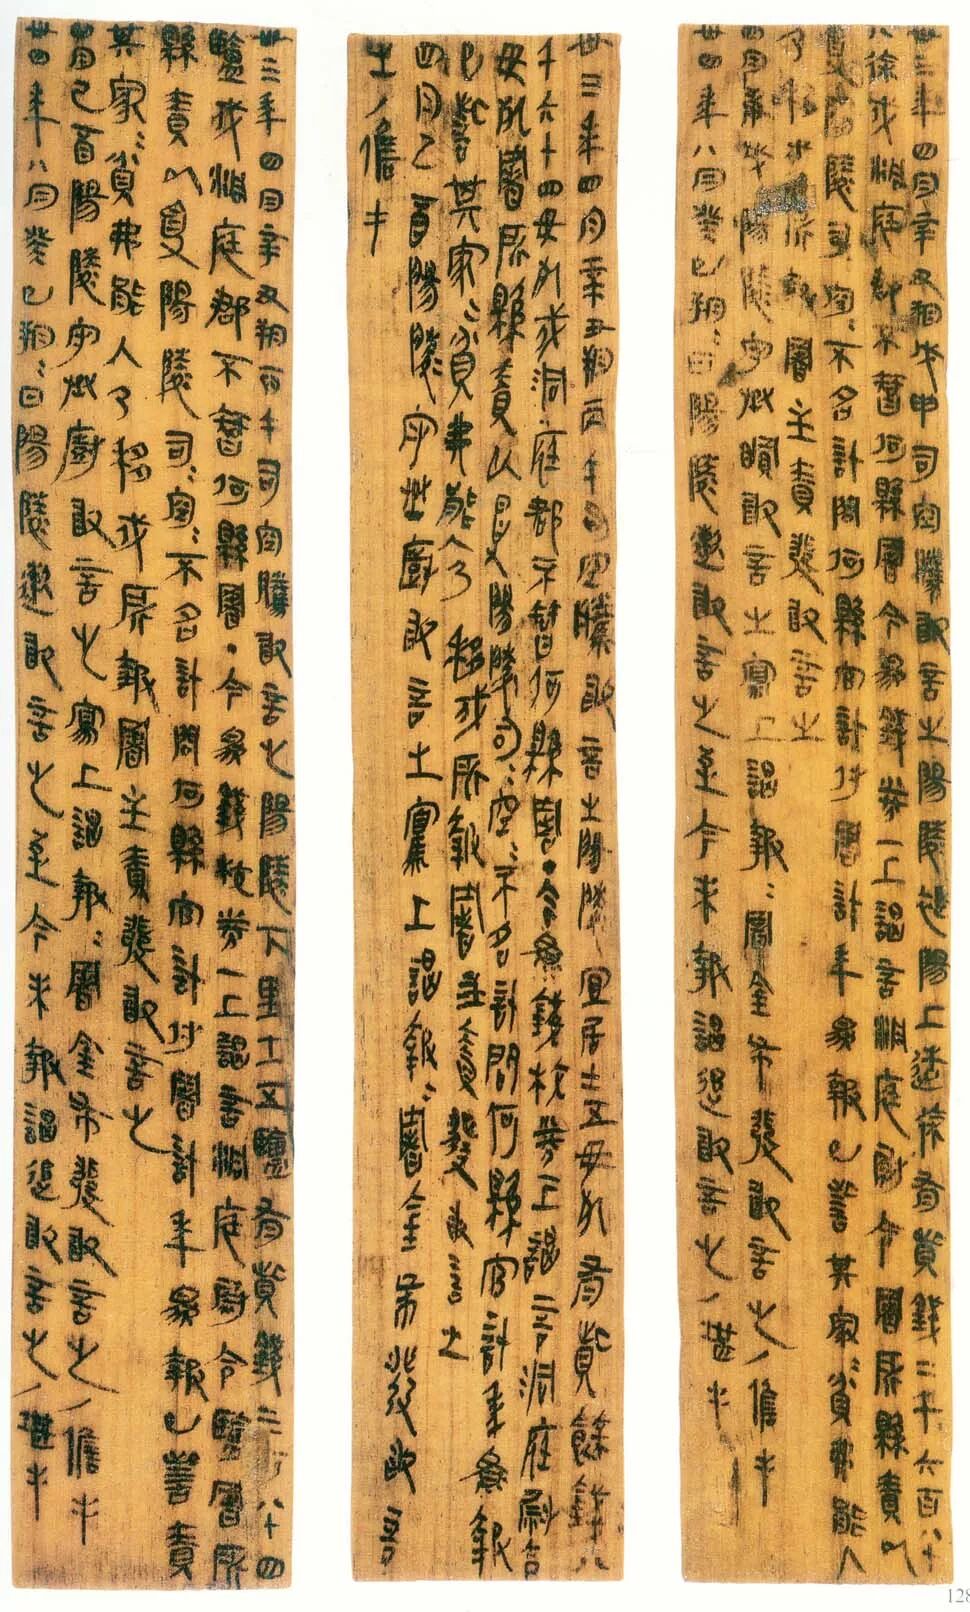 卅三年四月辛丑朔戊申司空騰敢言之陽陵褆陽上造徐有貲錢二千六百八十
八徐戍洞庭郡不智何縣署今為錢券一上謁言洞庭尉令署所縣責以
受陽陵司空=不名計問何縣官計付署計年為報已訾其家=貧弗能入
乃移戍所報署主責發敢言之
四月庚戌陽陵守丞敢言之寫上謁報=署金布發敢言之/儋手
卅四年八月癸巳朔=日陽陵遬敢言之至今未報謁追敢言之/堪手
卅三年四月辛丑朔丙午司空騰敢言之陽陵宜居士五毋死有貲餘錢八
千六十四毋死戍洞庭郡不智何縣署·今為錢校券一上謁言洞庭尉令
毋死署所縣責以受陽陵司=空=不名計問何縣官計年為報
已訾其家=貧弗能入乃移戍所報署主責發敢言之
四月己酉陽陵守丞廚敢言之寫上謁報=署金布發敢言
之/儋手
卅三年四月辛丑朔丙午司空騰敢言之陽陵下里士五鹽有貲錢三百八十四
鹽戍洞庭郡不智何縣署·今為錢校券一上謁言洞庭尉令鹽署所
縣責以受陽陵司=空=不名計問何縣官計付署計年為報已訾責
其家=貧弗能入乃移戍所報署主責發敢言之
四月己酉陽陵守丞廚敢言之寫上謁報=署金布發敢言之/儋手
卅四年八月癸巳朔=日陽陵遬敢言之至今未報謁追敢言之/堪手
128